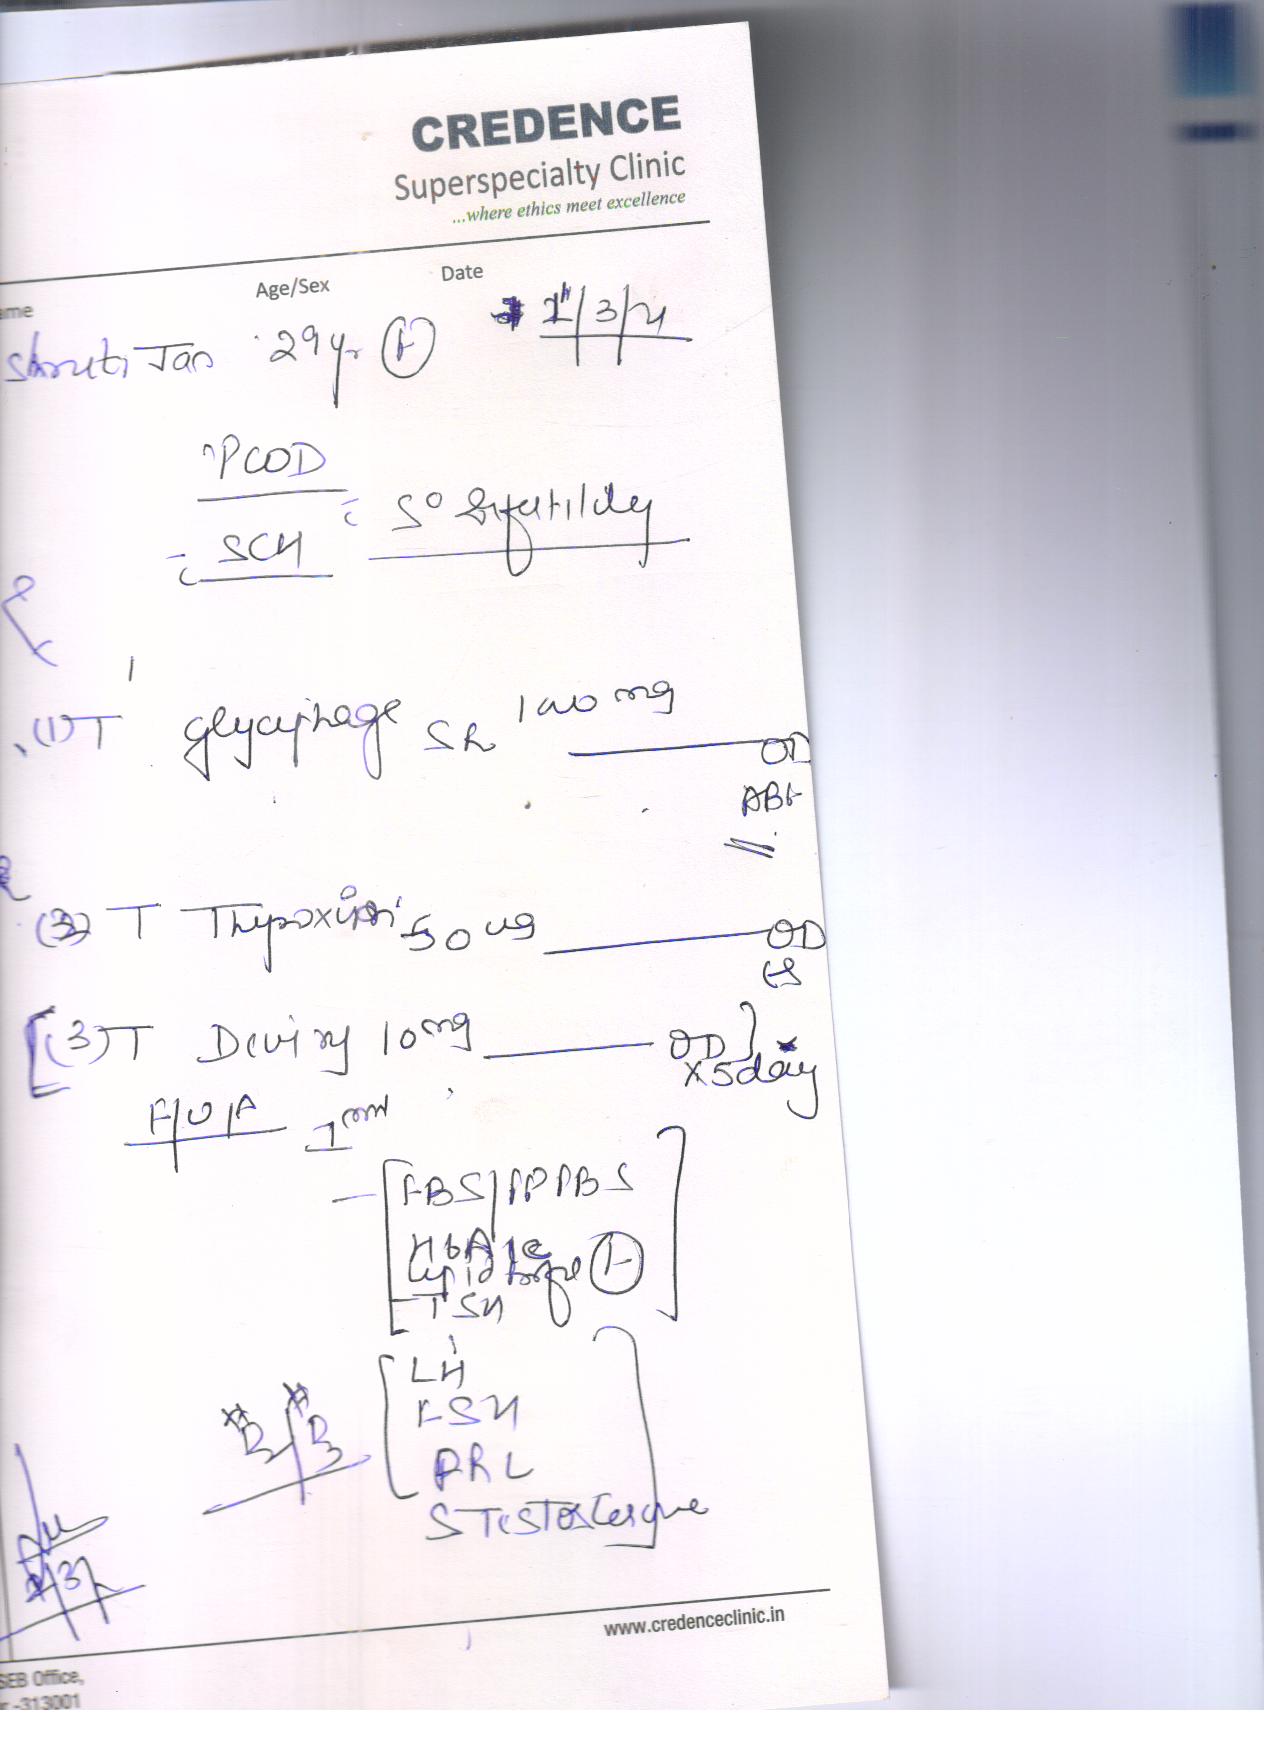 CREDENCE
Superspecialty Clinic
...where ethics meet excellence
ame Age/Sex Date
Shruti Jain 29 yr (F) /3/
PCOD
SCH
(1) T glycyphage SR mg OD
(2) T Thyroxin 50 ug OD
(3) T Deviry 10 mg OD
x 5 day
F/U/A 1
FBS/PPBS
HbA1c
Lipid Profile (F)
TSH
LH
FSH
PRL
S Testosterone
www.credenceclinic.in
SEB Office,
-313001